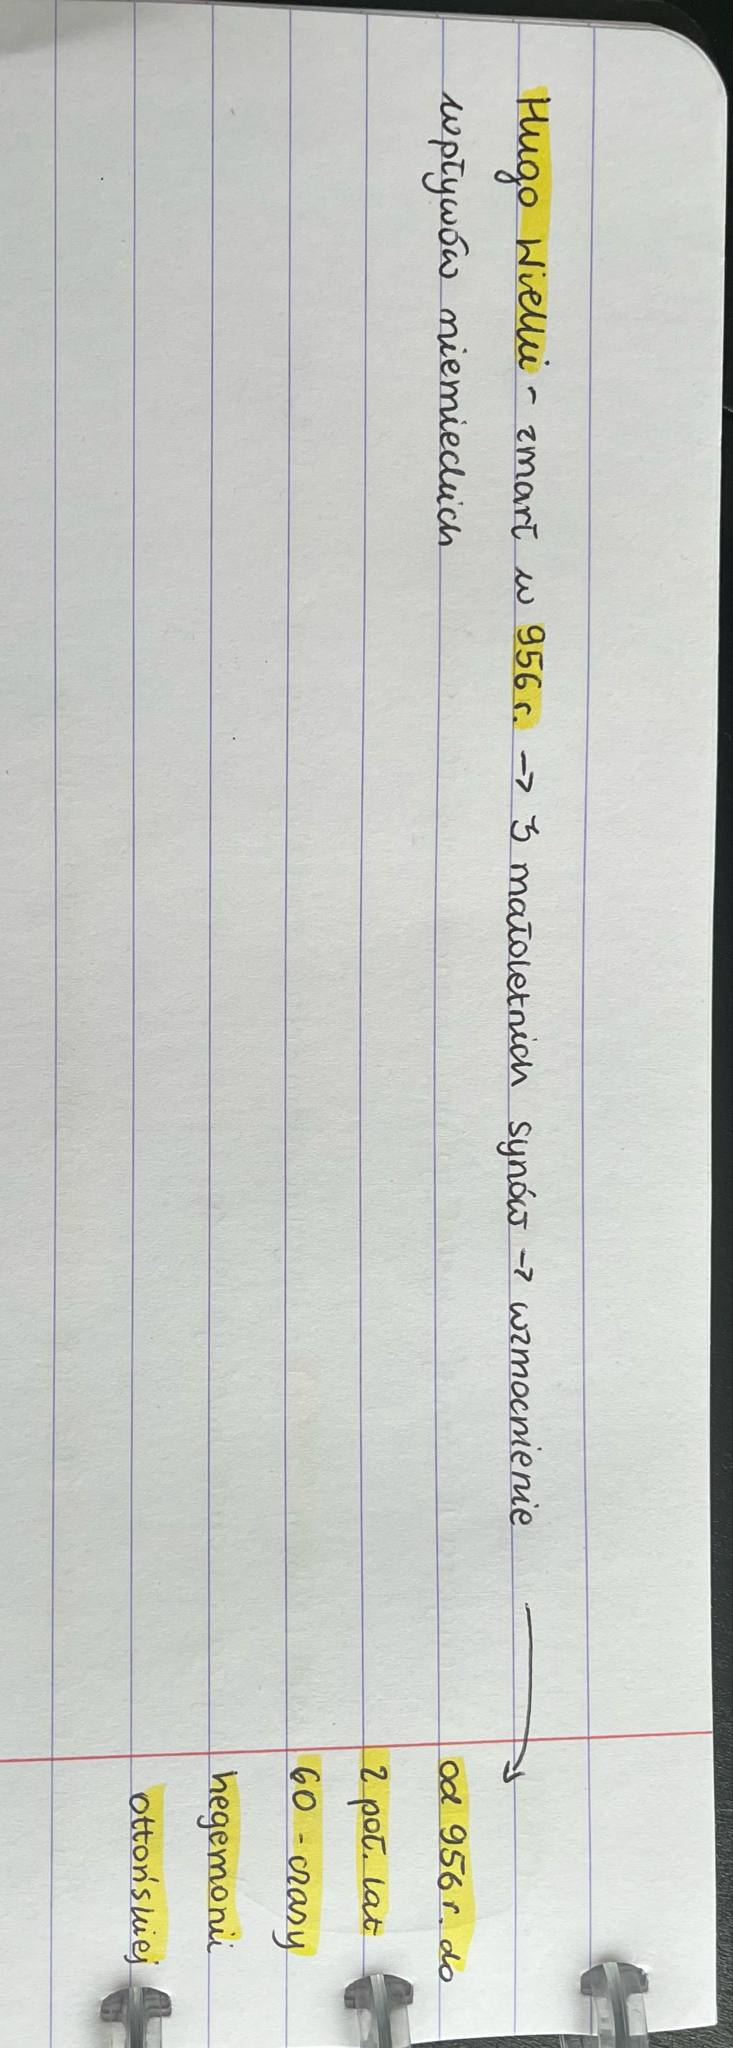 Hugo Wielki - zmarł w 956 r. → 3 małoletnich synów → wzmocnienie →
wpływów niemieckich
od 956 r. do
2 poł. lat
60 - czasy
hegemonii
ottońskiej